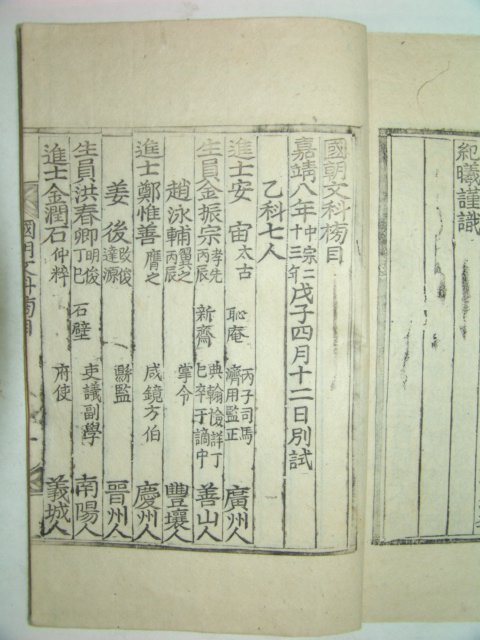 紀曦謹識
國朝文科榜目
嘉靖八年中宗二十三年戊子四月十二日別試
乙科七人
進士安宙太古 恥庵 丙子司馬濟用監正 廣州人
生員金振宗孝先丙辰 新齋 典翰檢詳乙卒于謫中 善山人
趙泳輔翼之丙辰 掌令 豐壤人
進士鄭惟善膺之 咸鏡方伯 慶州人
姜後改俊達源 縣監 晉州人
生員洪春卿明俊丁巳 石壁 吏議副學 南陽人
進士金潤石仲粹 府使 義城人
國朝文科榜目